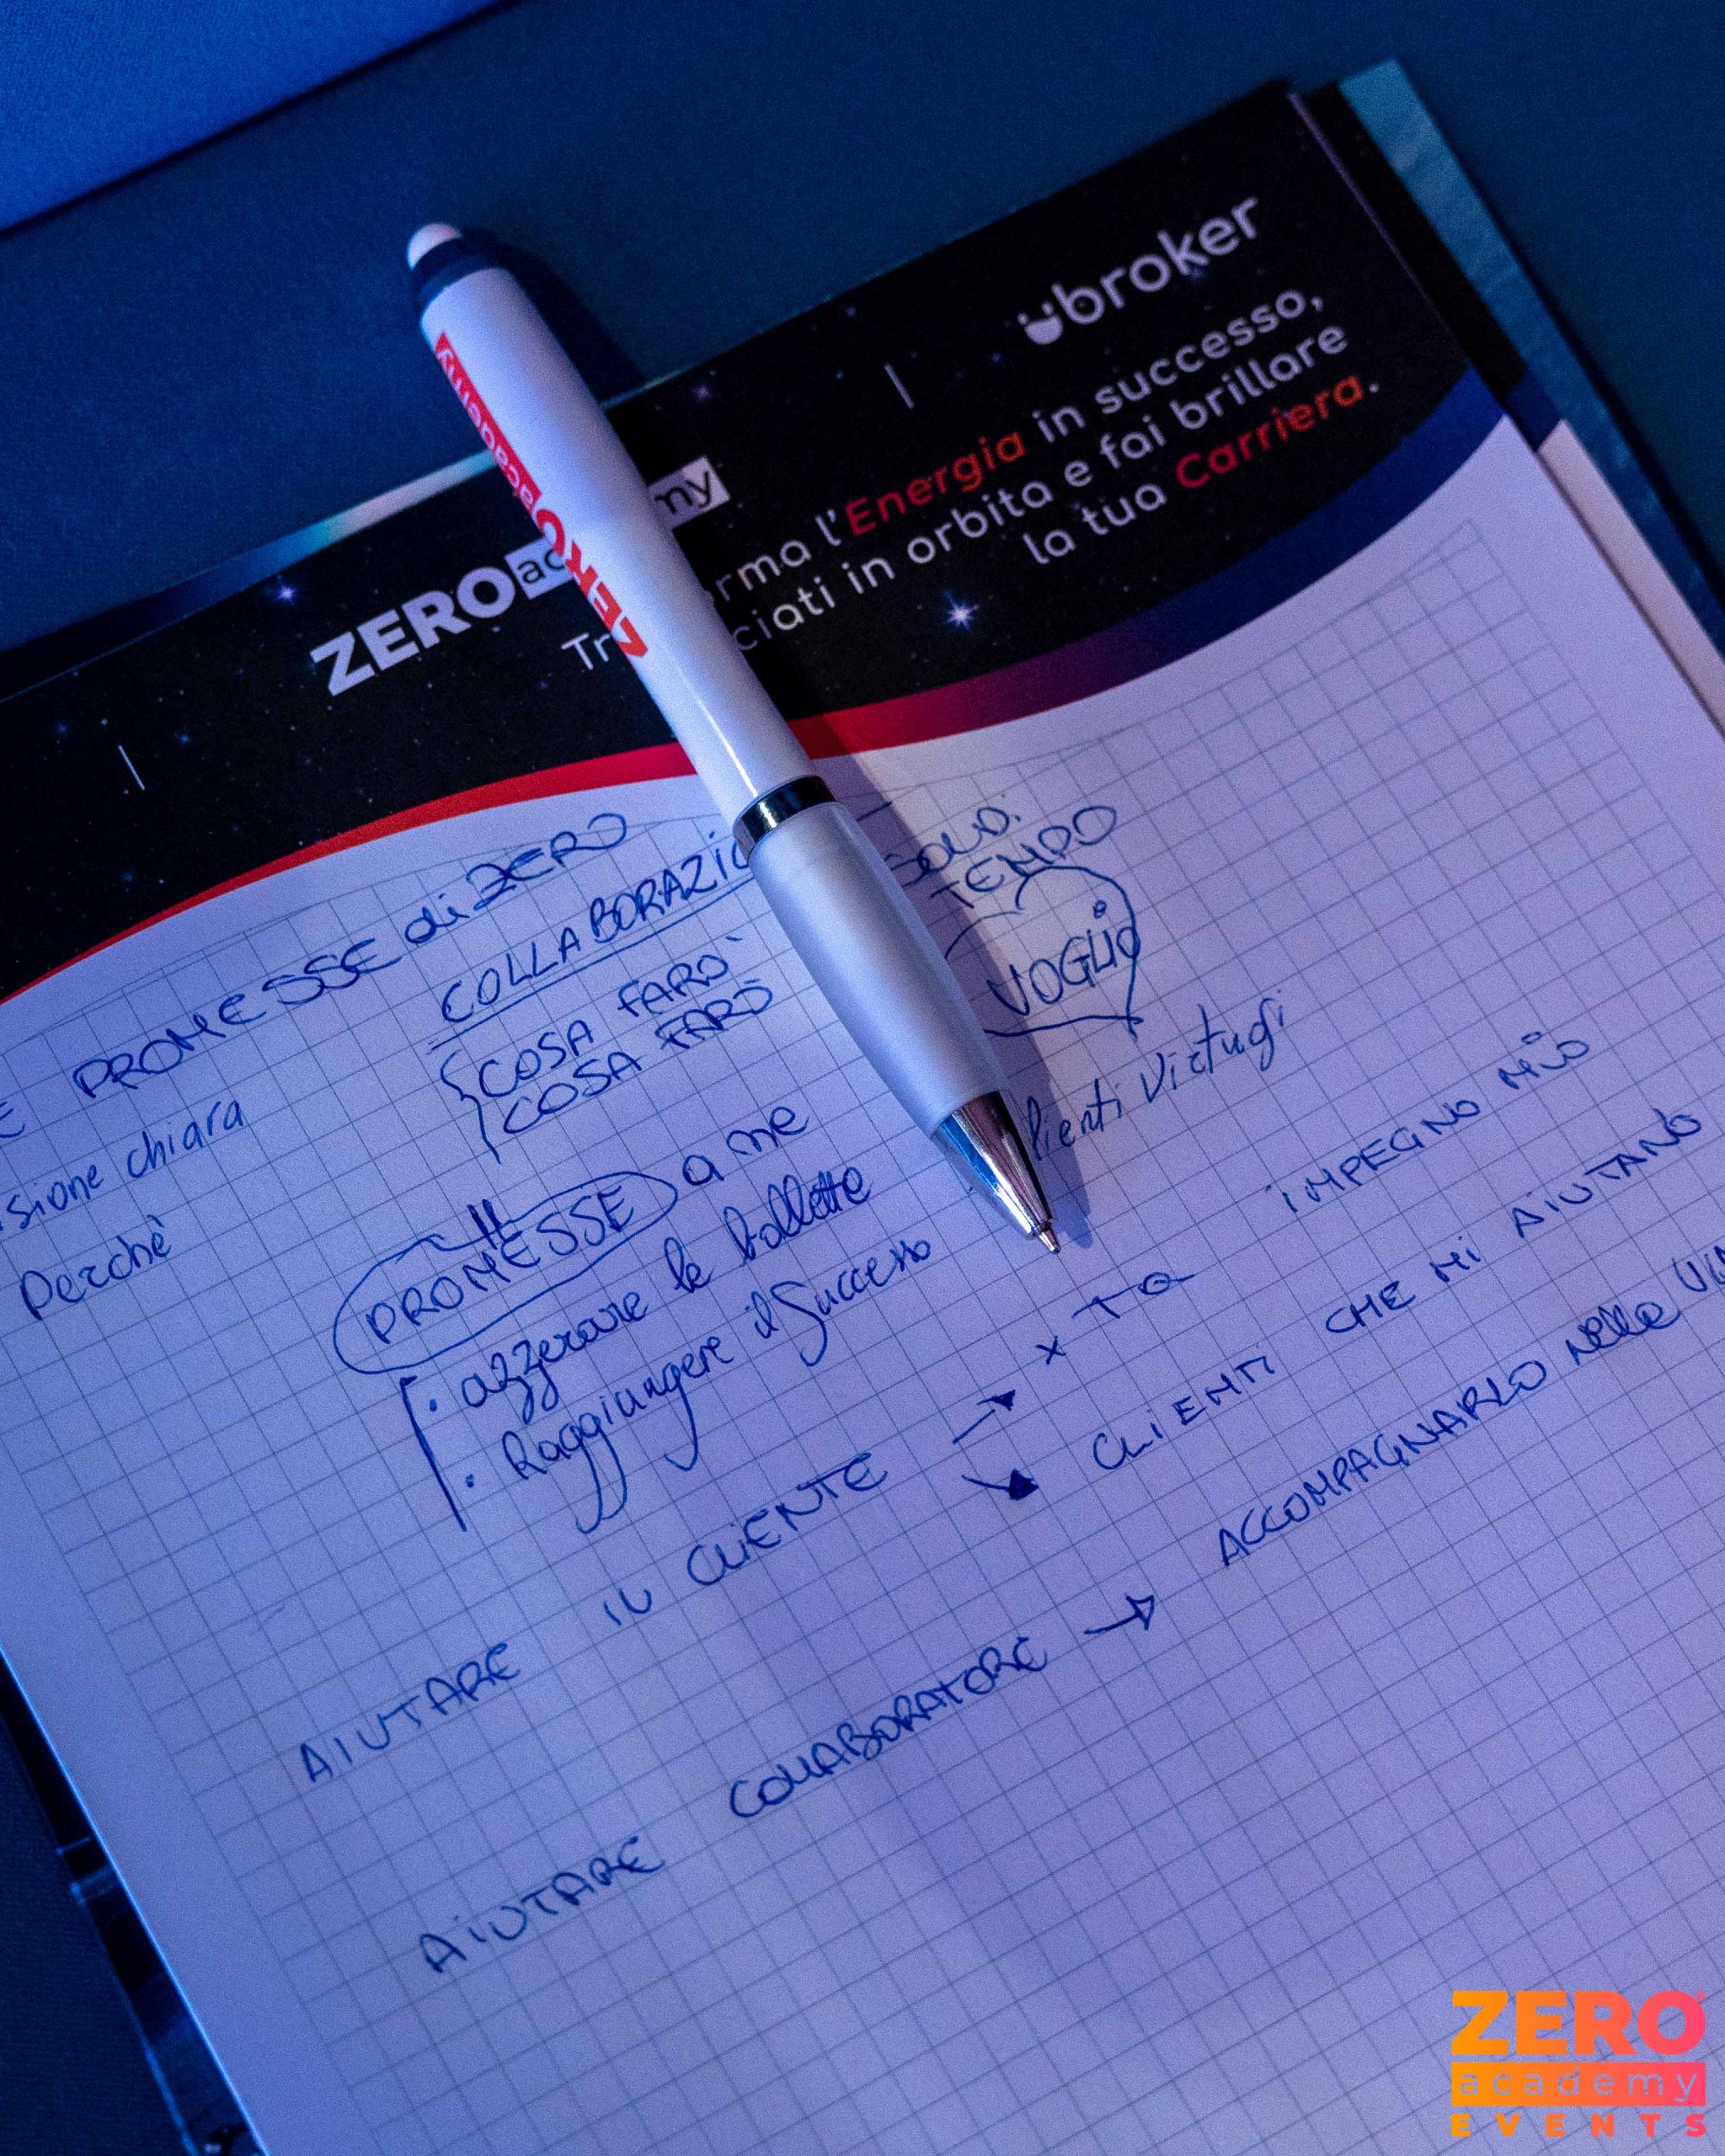 ubroker
ZERO ac my
Tr rma l'Energia in successo,
ciati in orbita e fai brillare
la tua Carriera.
ZERO academy
PROMESSE di ZERO
COLLABORAZIO
SOLDI
TEMPO
VOGLIO
COSA FARÒ
COSA FARÒ
isione chiara
Perchè
PROMESSE a me
. azzerare le bollette
. Raggiungere il Successo
AIUTARE IL CLIENTE → x TO IMPEGNO MIO
CLIENTI CHE MI AIUTANO
AIUTARE COLLABORATORE → ACCOMPAGNARLO nella
ZERO
academy
EVENTS